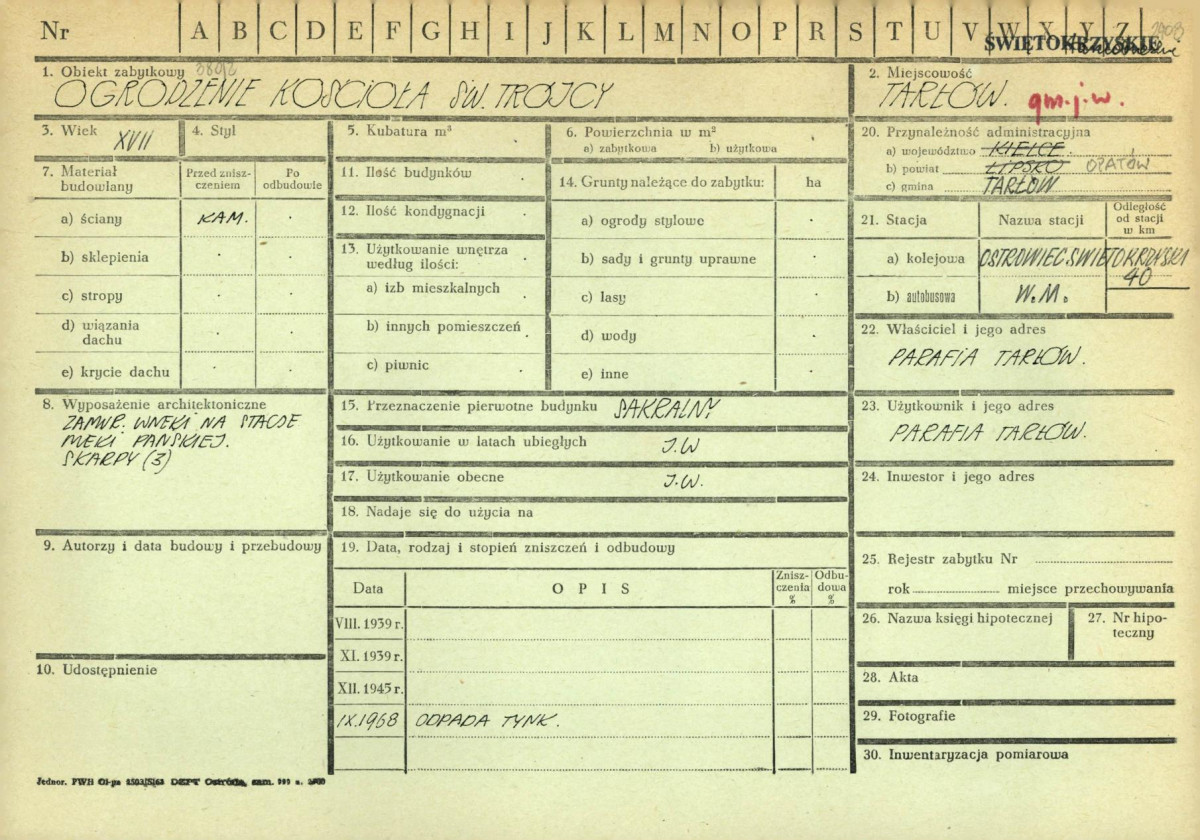 Nr A B C D E F G H I J K L M N O P R S T U V W X Y Z
ŚWIĘTOKRZYSKIE
1. Obiekt zabytkowy
OGRODZENIE KOŚCIOŁA ŚW. TRÓJCY
2. Miejscowość
TARŁÓW. gm. j. w.
3. Wiek XVII
4. Styl
5. Kubatura m³
6. Powierzchnia w m²
a) zabytkowa b) użytkowa
7. Materiał budowlany
Przed zniszczeniem
Po odbudowie
a) ściany KAM.
b) sklepienia
c) stropy
d) wiązania dachu
e) krycie dachu
8. Wyposażenie architektoniczne
ZAMUR. WNĘKI NA STACJE
MĘKI PAŃSKIEJ.
SKARPY (3)
9. Autorzy i data budowy i przebudowy
10. Udostępnienie
11. Ilość budynków
12. Ilość kondygnacji
13. Użytkowanie wnętrza
według ilości:
a) izb mieszkalnych
b) innych pomieszczeń
c) piwnic
14. Grunty należące do zabytku: ha
a) ogrody stylowe
b) sady i grunty uprawne
c) lasy
d) wody
e) inne
15. Przeznaczenie pierwotne budynku SAKRALNY
16. Użytkowanie w latach ubiegłych J.W
17. Użytkowanie obecne J.W.
18. Nadaje się do użycia na
19. Data, rodzaj i stopień zniszczeń i odbudowy
Data OPIS Zniszczenia % Odbudowa %
VIII. 1939 r.
XI. 1939 r.
XII. 1945 r.
IX.1968 ODPADA TYNK.
20. Przynależność administracyjna
a) województwo KIELCE
b) powiat LIPSKO OPATÓW
c) gmina TARŁÓW
21. Stacja Nazwa stacji Odległość od stacji w km
a) kolejowa OSTROWIEC ŚWIĘTOKRZYSKI 40
b) autobusowa W.M.
22. Właściciel i jego adres
PARAFIA TARŁÓW.
23. Użytkownik i jego adres
PARAFIA TARŁÓW.
24. Inwestor i jego adres
25. Rejestr zabytku Nr
rok miejsce przechowywania
26. Nazwa księgi hipotecznej
27. Nr hipoteczny
28. Akta
29. Fotografie
30. Inwentaryzacja pomiarowa